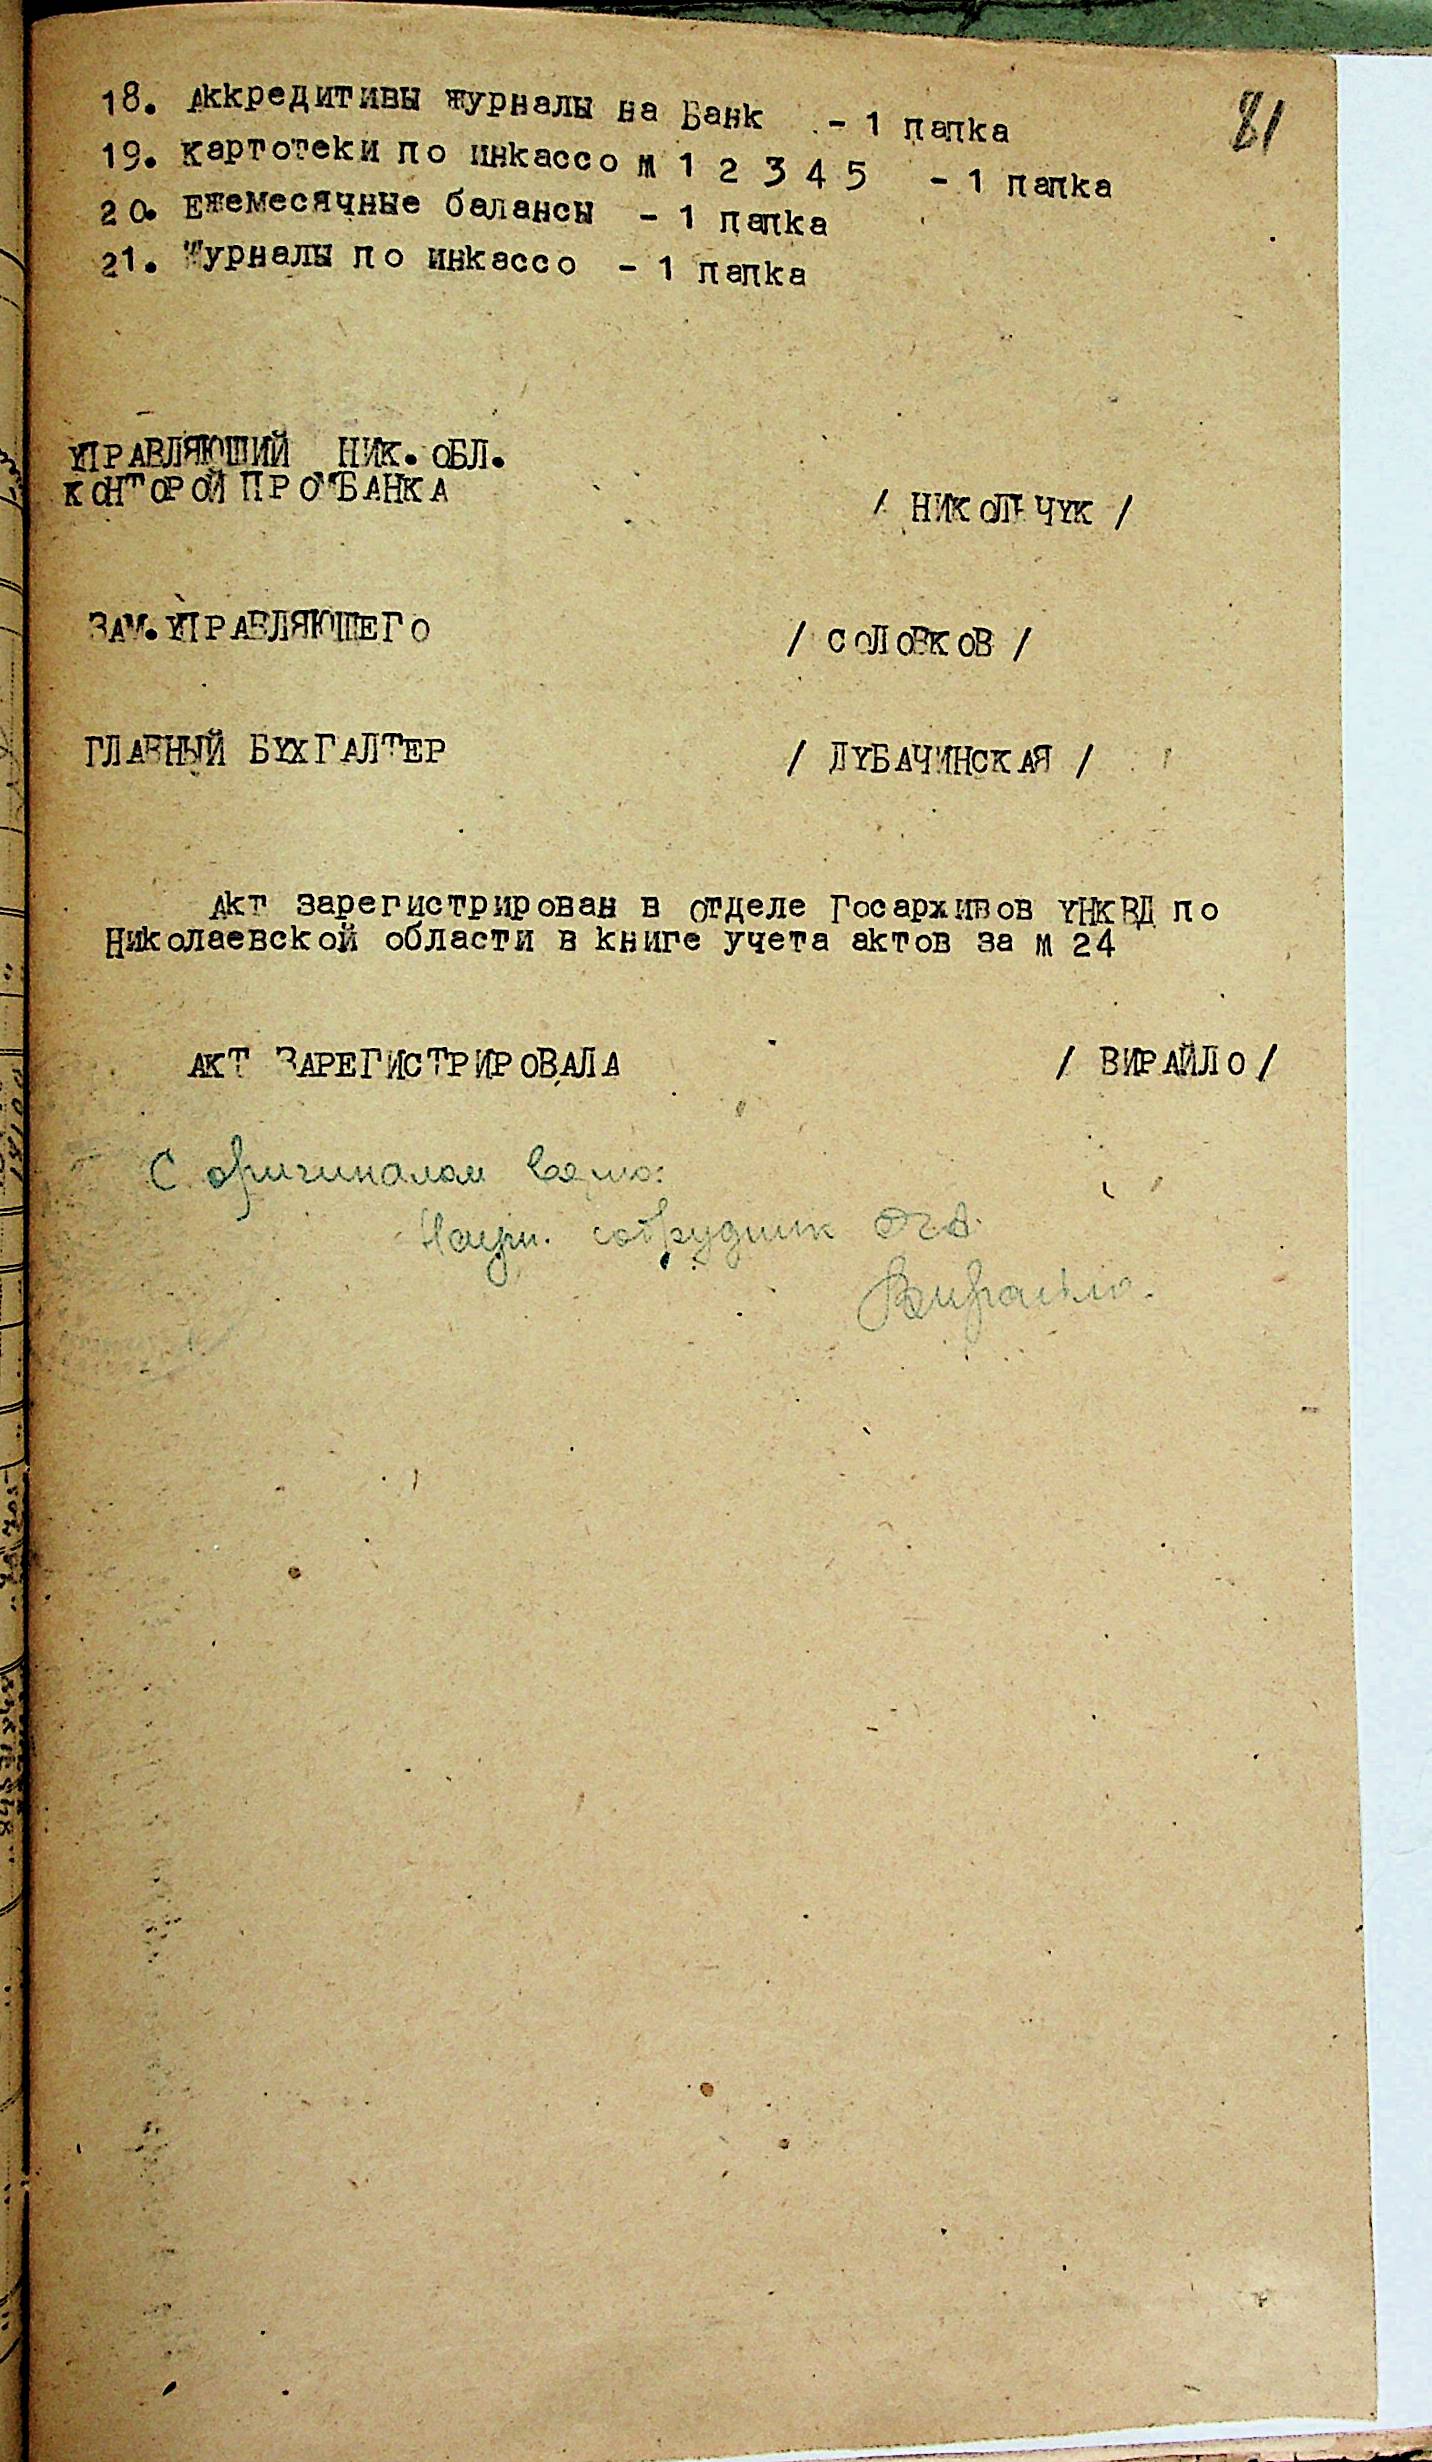 81
18. Аккредитивы журналы на Банк - 1 папка
19. Картотеки по инкассо м 1 2 3 4 5 - 1 папка
20. Ежемесячные балансы - 1 папка
21. Журналы по инкассо - 1 папка
УПРАВЛЯЮЩИЙ НИК. ОБЛ.
КОНТОРОЙ ПРОМБАНКА
/ НИКОЛЬЧУК /
ЗАМ. УПРАВЛЯЮЩЕГО / СОЛОВКОВ /
ГЛАВНЫЙ БУХГАЛТЕР / ДУБАЧИНСКАЯ /
Акт зарегистрирован в отделе Госархивов УНКВД по
Николаевской области в книге учета актов за м 24
АКТ ЗАРЕГИСТРИРОВАЛА / ВИРАЙЛО /
С оригиналом верно:
Научн. сотрудник ОГА
Вирайло.